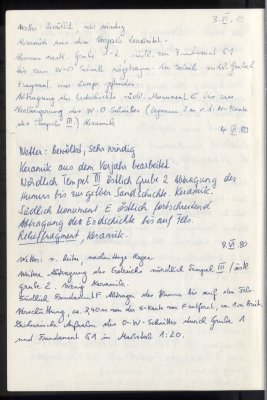 3. VI. 80
Wetter: bewölkt, sehr windig
Keramik aus dem Vorjahr bearbeitet.
Humus nördl. Grube 1-2 Fundament G1
bis zum W-O Schnitt abgetragen. Im Schnitt nördl. Grube 1
Fragment einer Lampe gefunden.
Abtragung der Erdschichte nördl. Monument E bis zur
Verlängerung des W-O-Schnittes (
Tempels III) Keramik
4. VI. 80
Wetter: bewölkt, sehr windig
Keramik aus dem Vorjahr bearbeitet
Nördlich Tempel III östlich Grube 2 Abtragung des
Humus bis zur gelben Sandschichte. Keramik.
Südlich Monument E östlich fortschreitend
Abtragung der Erdschichte bis auf Fels.
Relieffragment, Keramik.
9. VI 80
Wetter: n. heiter, nachmittags Regen
Weitere Abtragung des Erdreichs nördlich Tempel III / östl.
Grube 2. Wenig Keramik.
Südlich Fundament E Abtragen des Humus bis auf den Fels.
Verschüttung, ca. 2,40 m von der S-Kante von E entfernt, ca. 1 m breit,
Zeichnerische Aufnahme des O-W-Schnittes durch Grube 1
und Fundament G1 im Maßstab 1:20.